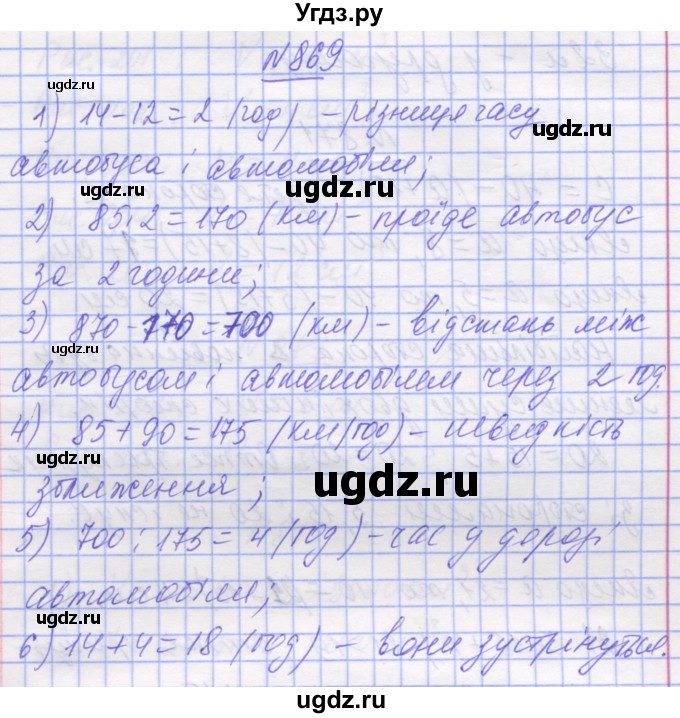 Угдз.ру
№869
ugdz.ru
1) 14-12=2 (год) - різниця часу
ugdz.ru
ugdz.ru
автобуса і автомобіля;
ugdz.ru
2) 85·2=170 (км) - проїде автобус
ugdz.ru
за 2 години;
3) 870-170=700 (км) - відстань між
ugdz.ru
ugdz.ru
автобусом і автомобілем через 2 год.
4) 85+90=175 (км/год) - швидкість
ugdz.ru
ugdz.ru
зближення;
5) 700:175=4 (год) - час у дорозі
ugdz.ru
ugdz.ru
автомобіля;
6) 14+4=18 (год) - вони зустрінуться.
ugdz.ru
ugdz.ru